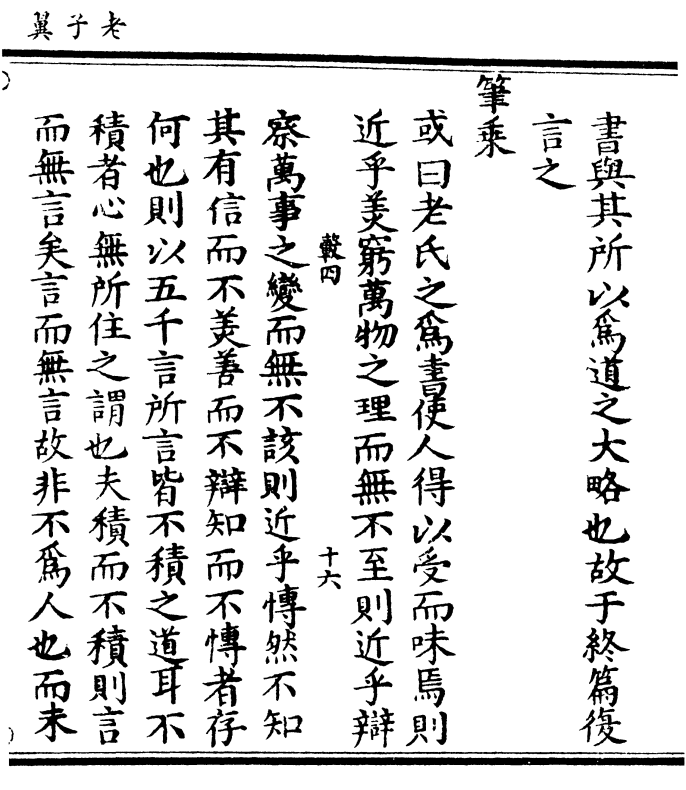 老子翼
書與其所以爲道之大略也故于終篇復
言之
筆乘
或曰老氏之爲書使人得以受而味焉則
近乎美窮萬物之理而無不至則近乎辯
轂四 十六
察萬事之變而無不該則近乎愽然不知
其有信而不美善而不辯知而不愽者存
何也則以五千言所言皆不積之道耳不
積者心無所住之謂也夫積而不積則言
而無言矣言而無言故非不爲人也而未